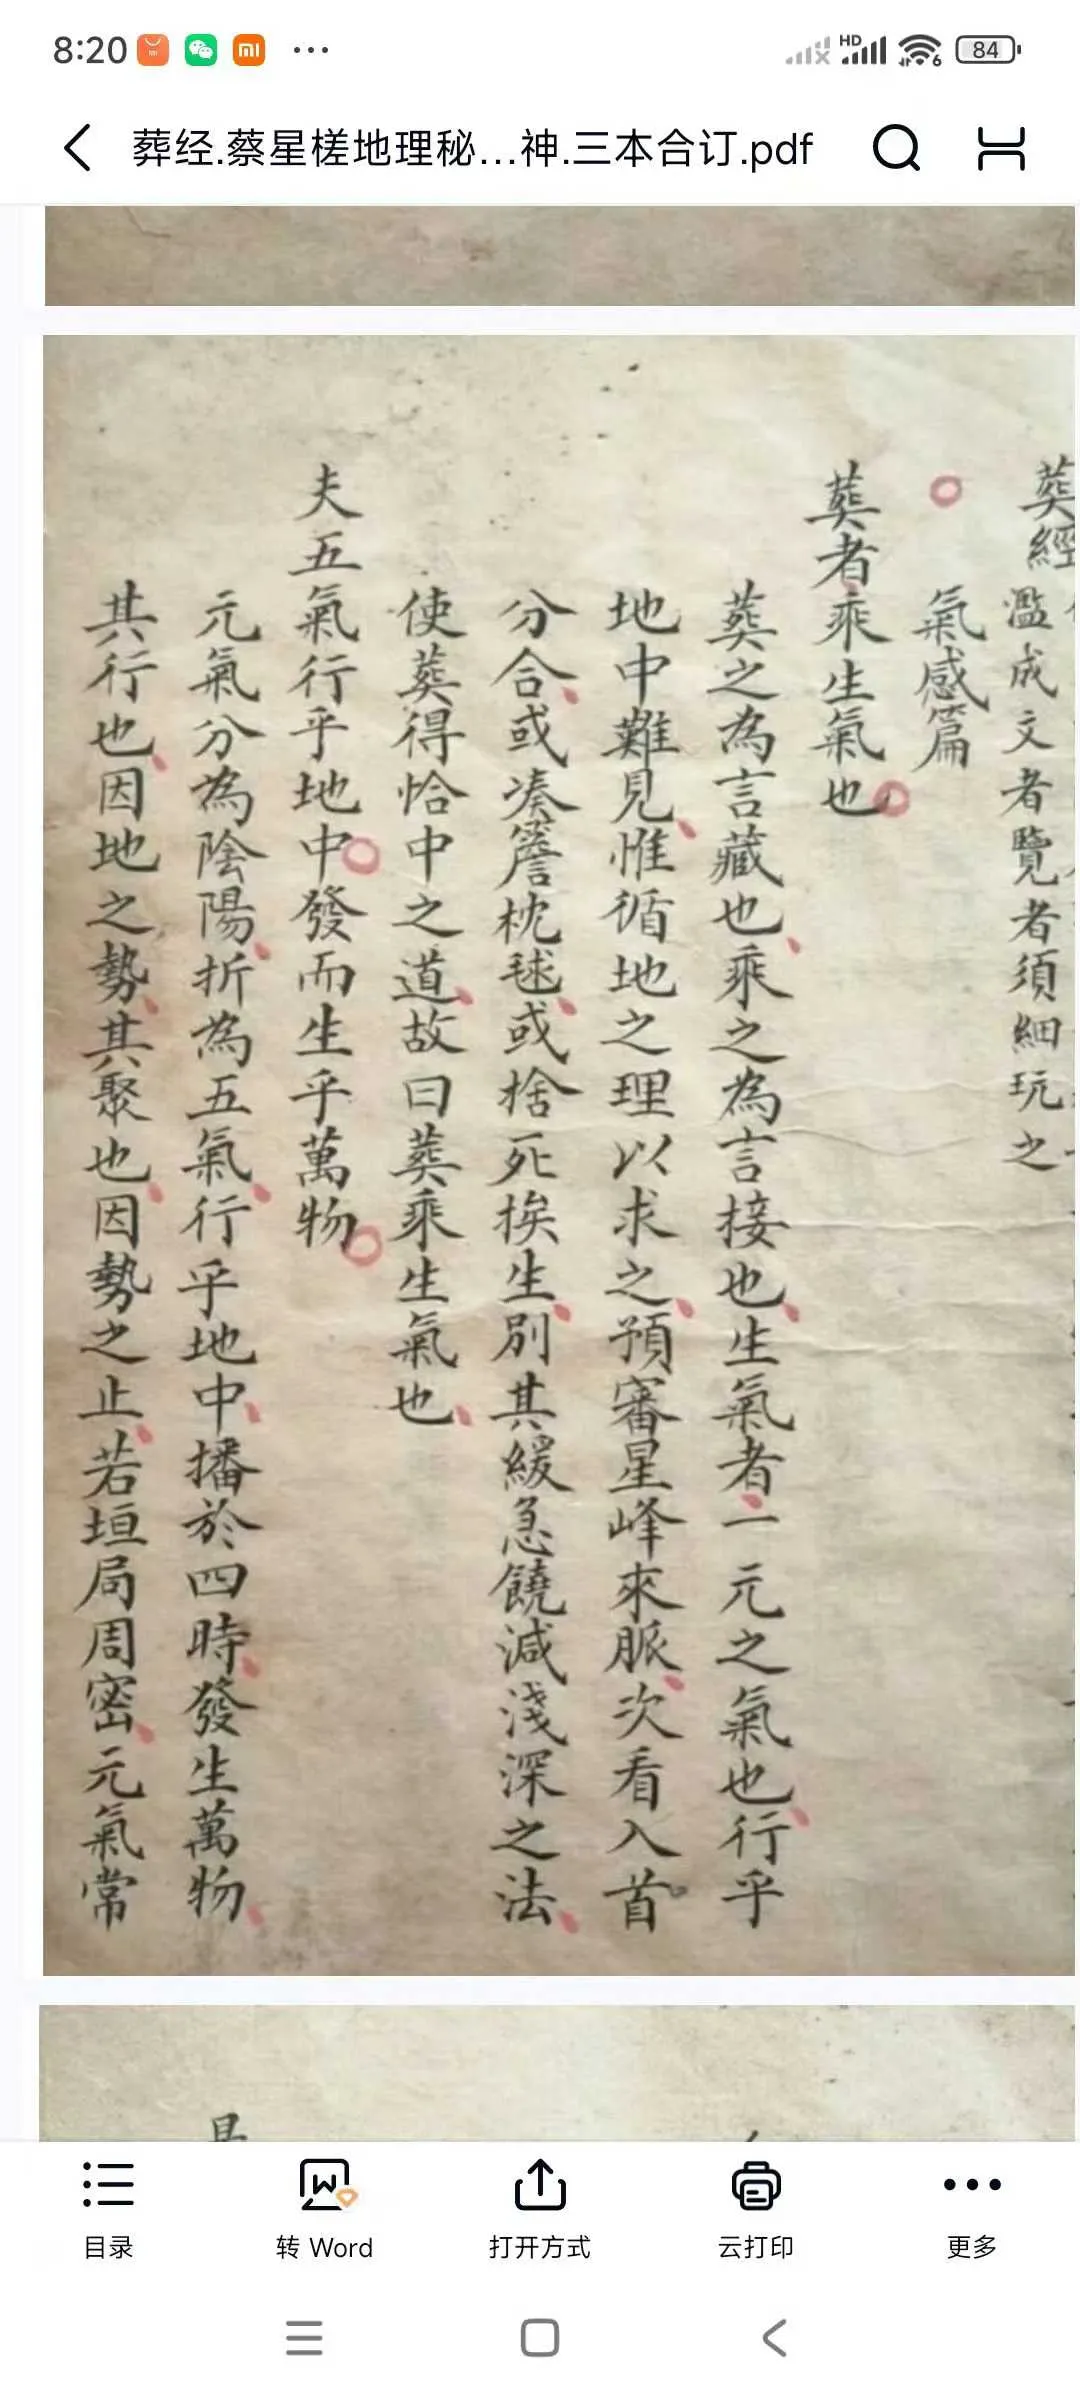 8:20
HD
6
84
葬经.蔡星槎地理秘…神.三本合订.pdf
葬經
濫成文者覽者須細玩之
氣感篇
葬者乘生氣也
葬之為言藏也乘之為言接也生氣者一元之氣也行乎
地中難見惟循地之理以求之預審星峰來脈次看入首
分合或凑簷枕毬或捨死挨生別其緩急饒減淺深之法
使葬得恰中之道故曰葬乘生氣也
夫五氣行乎地中發而生乎萬物
元氣分為陰陽折為五氣行乎地中播於四時發生萬物
其行也因地之勢其聚也因勢之止若垣局周密元氣常
目录
转 Word
打开方式
云打印
更多